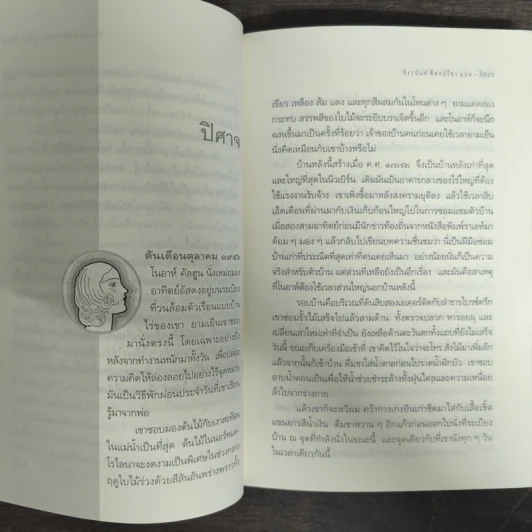 ปีศาจ
ต้นเดือนตุลาคม ๑๙๔
โนอาห์ คัลฮูน นั่งเหม่อมอง
อาทิตย์อัสดงอยู่บนระเบียง
ที่วนล้อมตัวเรือนแบบบ้าน
ไร่ของเขา ยามเย็นเขาชอบ
มานั่งตรงนี้ โดยเฉพาะอย่างยิ่ง
หลังจากทำงานหนักมาทั้งวัน เพื่อปล่อย
ความคิดให้ล่องลอยไปอย่างไร้จุดหมาย
มันเป็นวิธีพักผ่อนประจำวันที่เขาเรียน
รู้มาจากพ่อ
เขาชอบมองต้นไม้กับเงาสะท้อน
ในแม่น้ำเป็นที่สุด ต้นไม้ในนอร์ทแค
โรไลนาจะงดงามเป็นพิเศษในช่วงกลาง
ฤดูใบไม้ร่วงด้วยสีสันอันพร่างพราวทั้ง
จิระนันท์ พิตรปรีชา แปล •
เขียว เหลือง ส้ม แดง และทุกสีผสมกันในโทนต่าง ๆ ยามแดดส่อง
กระทบ สรรพสีของใบไม้จะระยิบบรรเจิดขึ้นอีก และโนอาห์ก็จะนึก
ฉงนขึ้นมาเป็นครั้งที่ร้อยว่า เจ้าของบ้านคนก่อนเคยใช้เวลายามเย็น
นั่งคิดเหมือนกับเขาบ้างหรือไม่
บ้านหลังนี้สร้างเมื่อ ค.ศ. ๑๗๗๒ จึงเป็นบ้านหลังเก่าที่สุด
และใหญ่ที่สุดในนิวเบิร์น เดิมมันเป็นอาคารกลางของไร่ใหญ่ที่ต้อง
ใช้แรงงานรับจ้าง เขาเพิ่งซื้อมาหลังสงครามยุติลง แล้วใช้เวลาสิบ
เอ็ดเดือนที่ผ่านมากับเงินเก็บก้อนใหญ่ไปในการซ่อมแซมตัวบ้าน
เมื่อสองสามอาทิตย์ก่อนมีนักข่าวท้องถิ่นจากหนังสือพิมพ์ราเลห์มา
ด้อม ๆ มอง ๆ แล้วกลับไปเขียนบทความชื่นชมว่า นี่เป็นฝีมือซ่อม
บ้านเก่าที่ประณีตที่สุดเท่าที่ตนเคยเห็นมา อย่างน้อยนั่นก็เป็นความ
จริงสำหรับตัวบ้าน แต่ส่วนที่เหลือยังเป็นอีกเรื่อง และมันคือสาเหตุ
ที่โนอาห์ต้องใช้เวลาส่วนใหญ่นอกบ้านหลังนี้
รอบบ้านคือบริเวณที่ดินสิบสองเอเคอร์ติดกับลำธารไบรซ์ครีก
เขาซ่อมรั้วไม้เสร็จไปแล้วสามด้าน ทั้งตรวจปลวก ทารอยผุ และ
เปลี่ยนเสาใหม่เท่าที่จำเป็น ยังเหลือด้านตะวันตกทั้งแถบที่ยังไม่เสร็จ
วันนี้ ขณะเก็บเครื่องมือเข้าที่ เขาคิดไว้ในใจว่าจะโทร.สั่งไม้มาเพิ่มอีก
แล้วจากนั้นก็เข้าบ้าน ดื่มชาใส่น้ำตาลก่อนไปราดน้ำฝักบัว เขาชอบ
อาบน้ำตอนเย็นเพื่อให้น้ำช่วยชำระล้างทั้งฝุ่นไคลและความเหนื่อย
ล้าไปจากร่างกาย
แล้วเขาก็จะหวีผม คว้ากางเกงยีนเก่าซีดมาใส่กับเสื้อเชิ้ต
แขนยาวสีน้ำเงิน ดื่มชาหวาน ๆ อีกแก้วก่อนออกไปนั่งที่ระเบียง
บ้าน ณ จุดที่กำลังนั่งในขณะนี้ และจุดเดียวกับที่เขานั่งทุก ๆ วัน
ในเวลาเดียวกันนี้